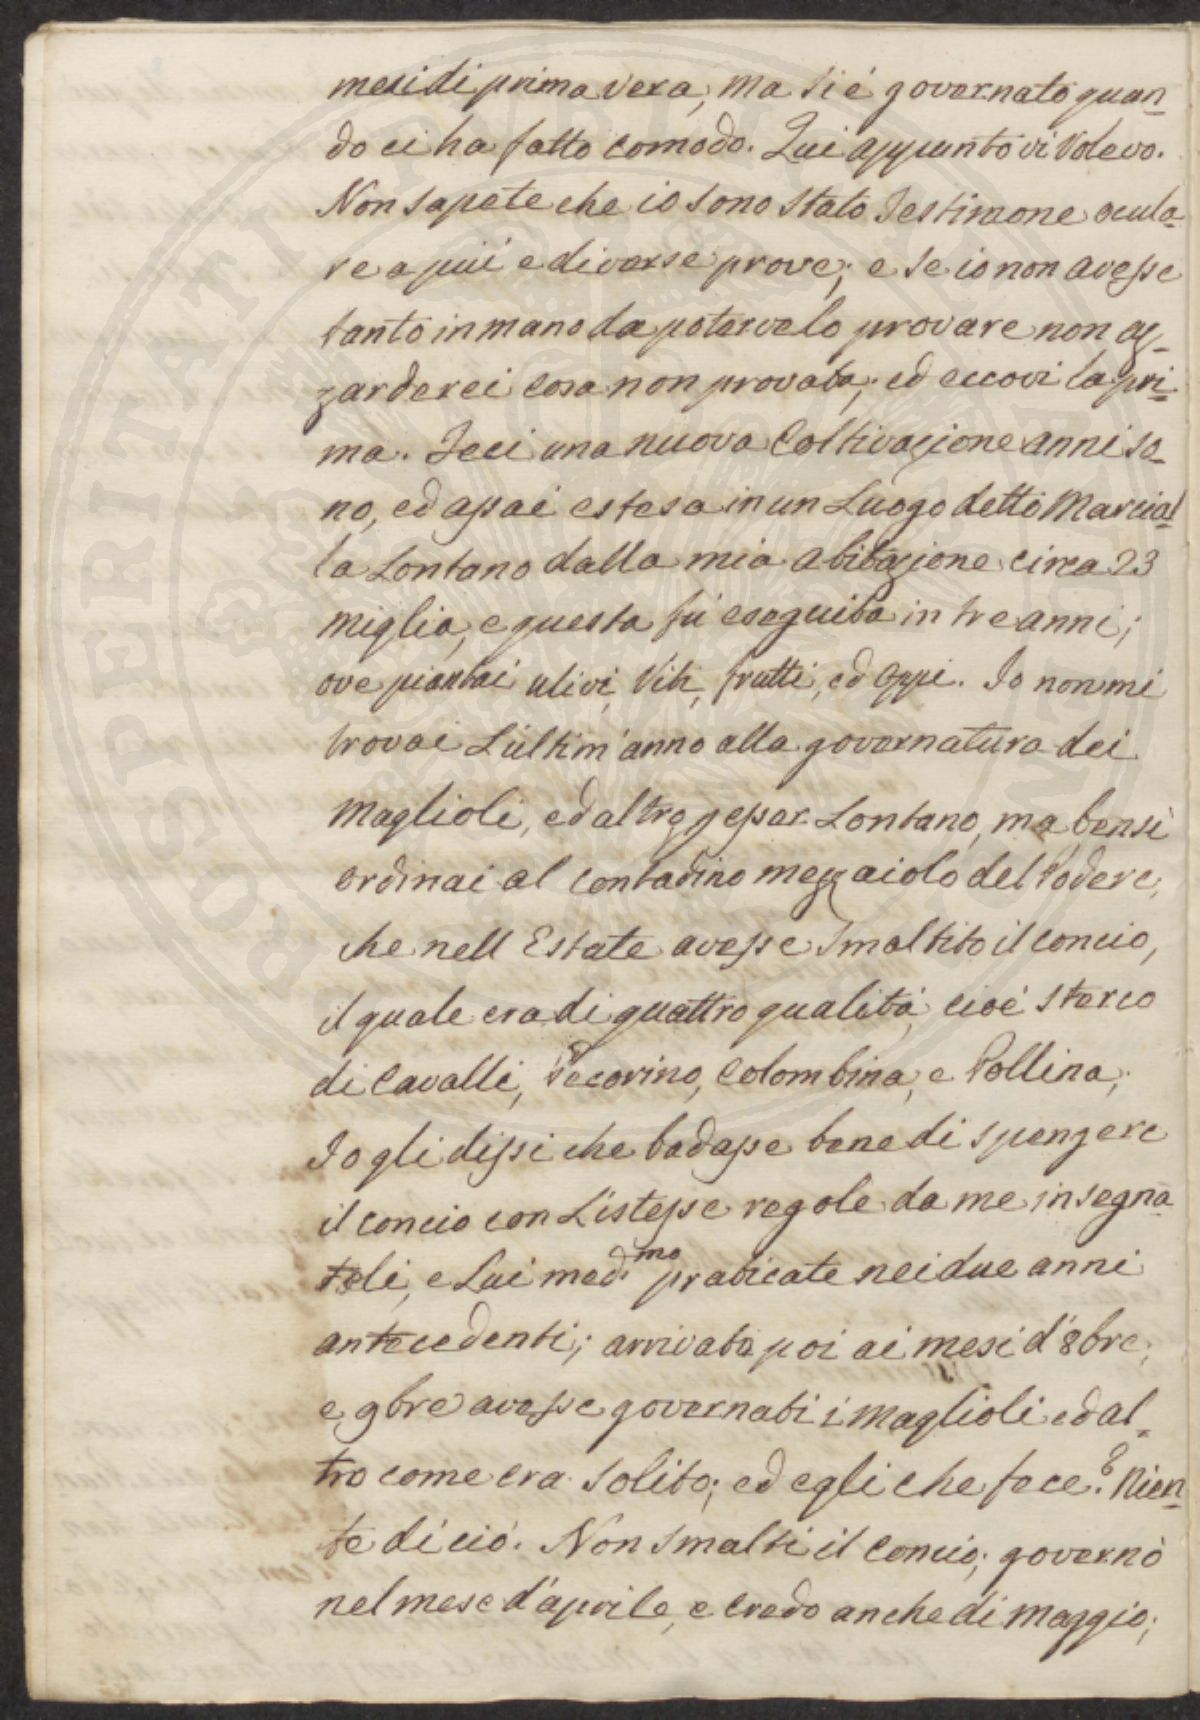 mesi di prima vera, ma si é governato quan-
do ci ha fatto comodo. Qui appunto vi volevo.
Non sapete che io sono stato Testimone ocula-
re a piú e diverse prove; e se io non avesse
tanto in mano da potervelo provare non az-
zarderei cosa non provata; ed eccovi la pri-
ma. Feci una nuova Coltivazione anni so-
no, ed assai estesa in un Luogo detto Marcial-
la Lontano dalla mia abitazione circa 23
miglia, e questa fú eseguita in tre anni;
ove piantai ulivi, Viti, frutti, ed oppi. Io non mi
trovai L'ultim'anno alla governatura dei
Maglioli, ed altro p esser Lontano, ma bensi
ordinai al contadino mezzaiolo del Podere,
che nell Estate avesse smaltito il concio,
il quale era di quattro qualitá, cioé sterco
di Cavalli, Pecorino, Colombina, e Pollina,
Io gli dissi che badasse bene di spengere
il concio con L'istesse regole da me insegna-
teli, e Lui med.mo praticate nei due anni
antecedenti; arrivato poi ai mesi d'8bre,
e 9bre avesse governati i Maglioli ed al-
tro come era solito; ed egli che fece? Nien-
te di ció. Non smaltí il Concio; governò
nel mese d'aprile, e credo anche di Maggio;
PROSPERITATI PUBLICAE